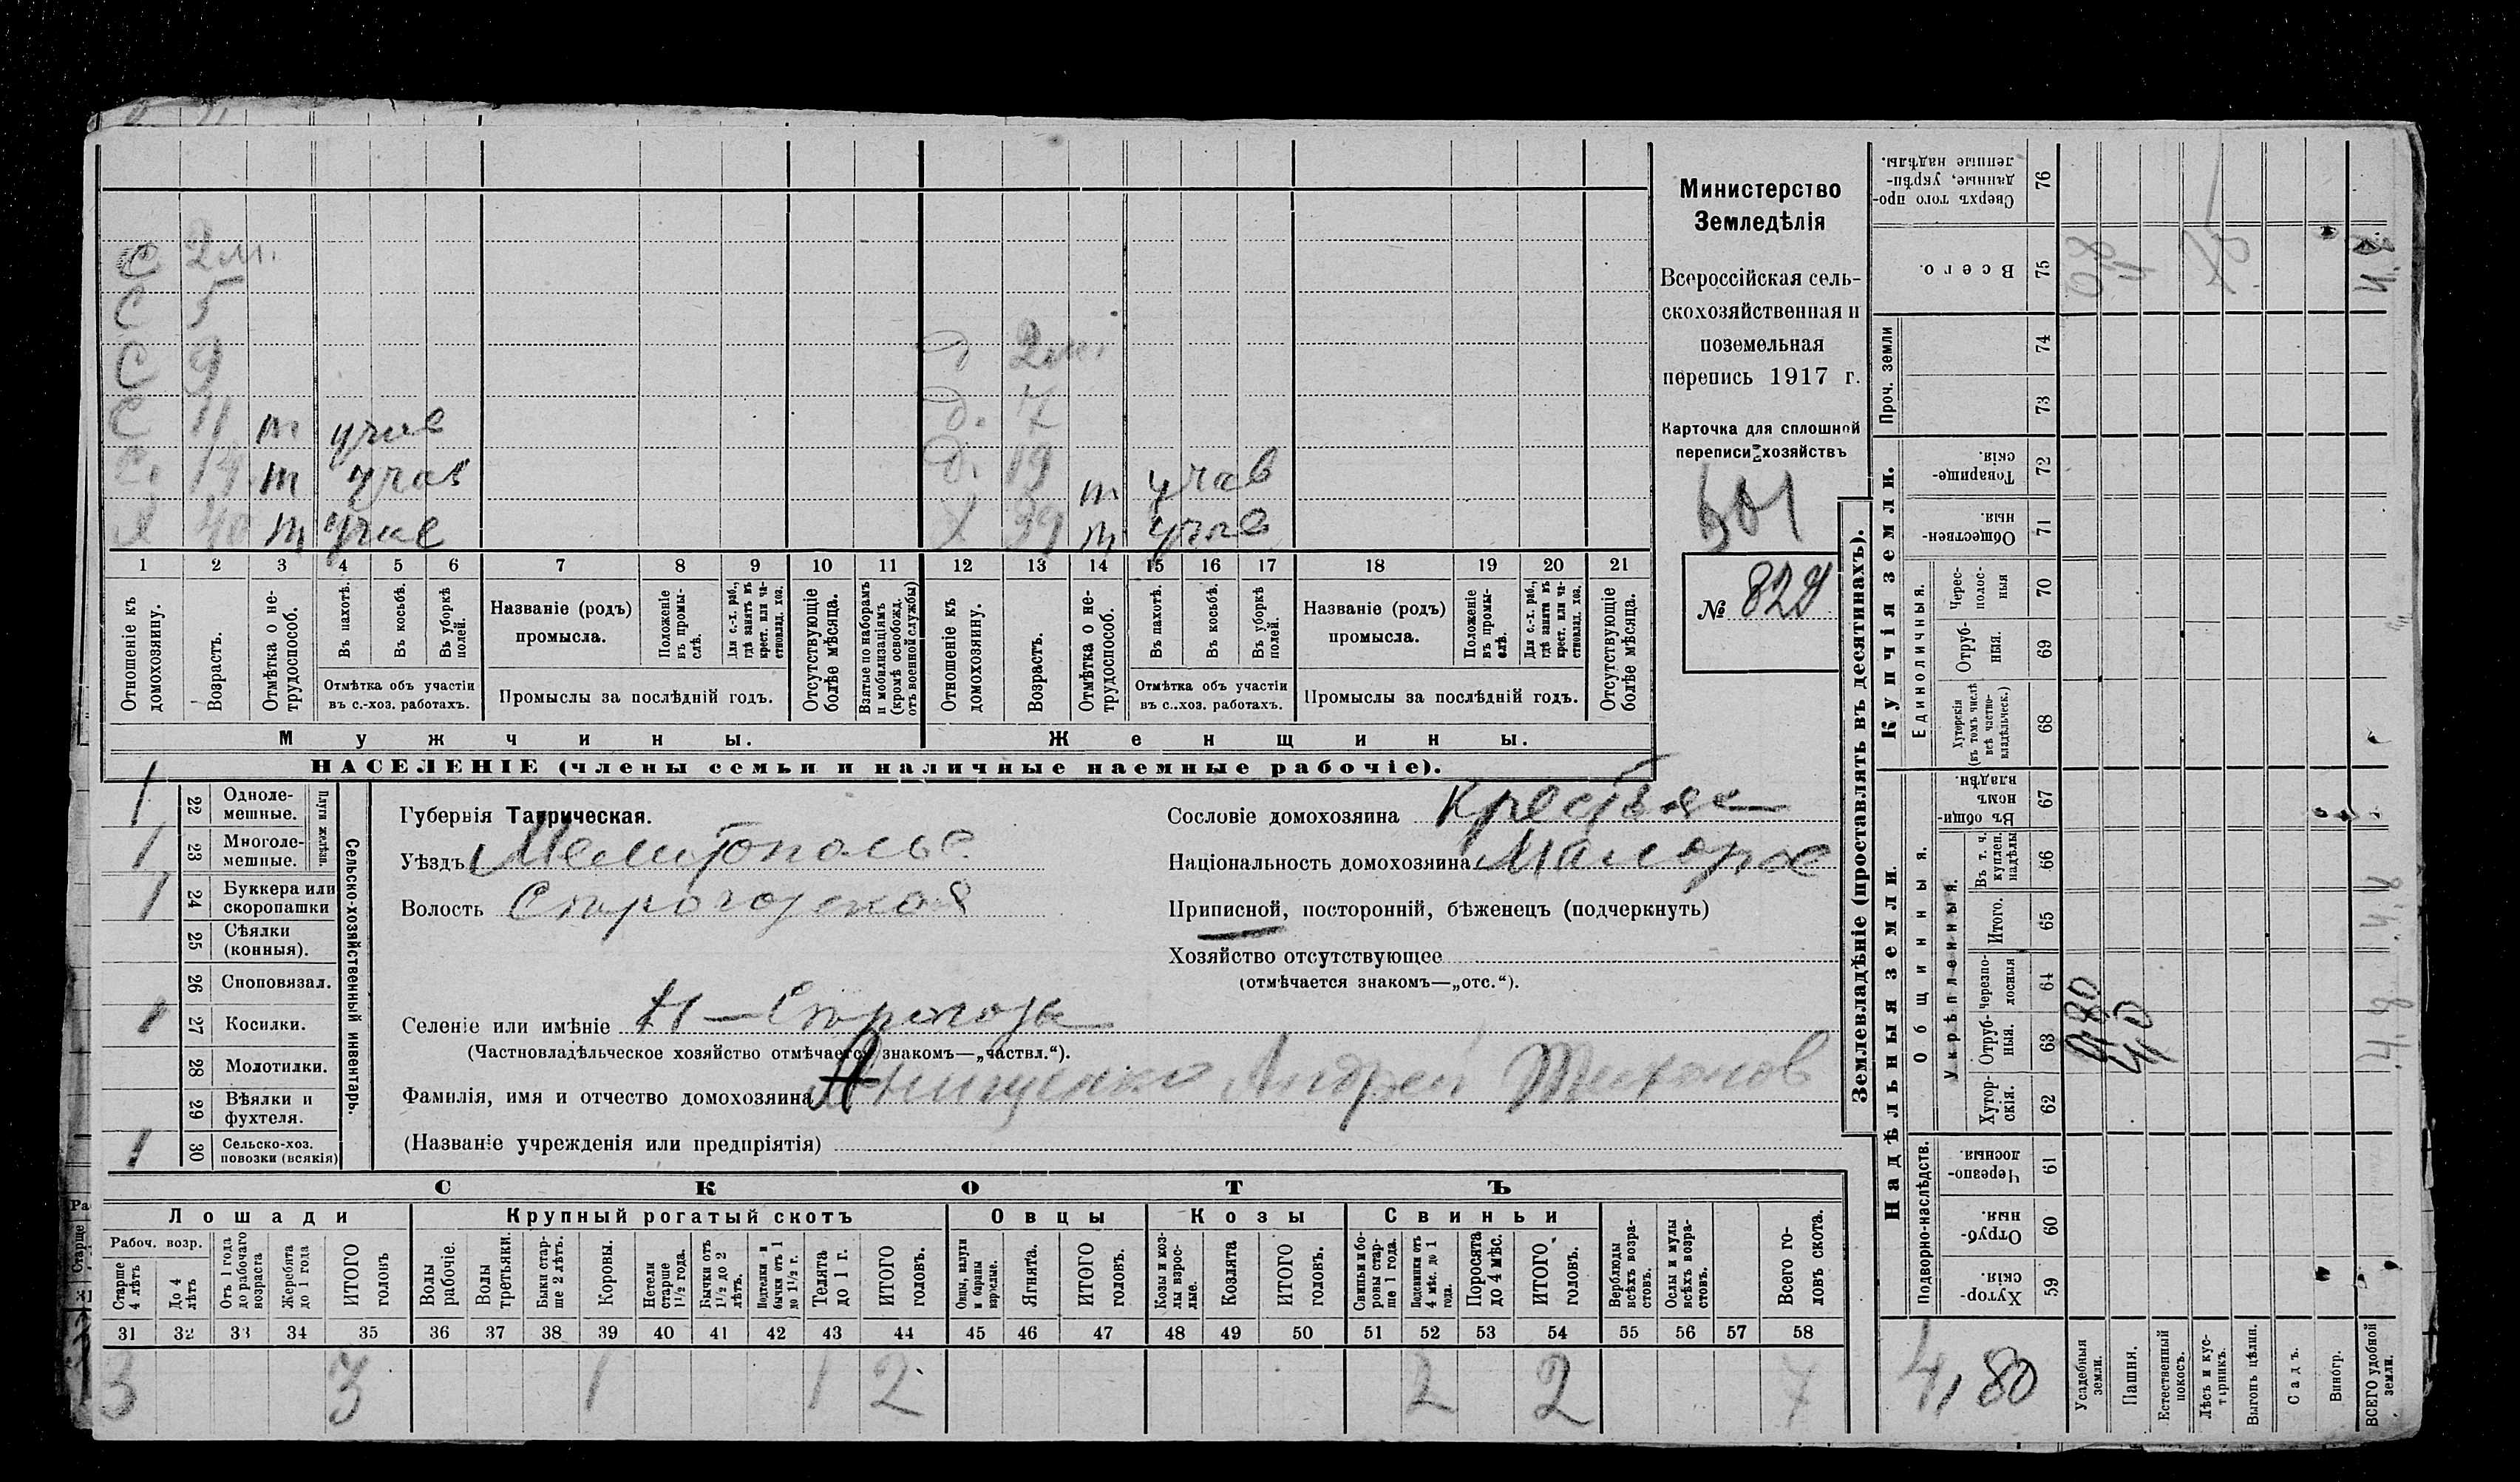 С 2 м.
С 5
С 9 Д 2 м.
С 11 т учав Д. 7
С. 14 т учав Д. 19 т учав
Х 40 т учав Х 39 т учав
1 2 3 4 5 6 7 8 9 10 11 12 13 14 15 16 17 18 19 20 21
Отношеніе къ домохозяину.
Возрастъ.
Отмѣтка о нетрудоспособ.
Въ пахотѣ.
Въ косьбѣ.
Въ уборкѣ полей.
Отмѣтка объ участіи въ с.-хоз. работахъ.
Названіе (родъ) промысла.
Положеніе въ промыслѣ.
Для с.-х. раб., гдѣ занятъ въ крест. или частновлад. хоз.
Промыслы за послѣдній годъ.
Отсутствующіе болѣе мѣсяца.
Взятые по наборамъ и мобилизаціямъ (кромѣ освобожд. отъ военной службы)
Отношеніе къ домохозяину.
Возрастъ.
Отмѣтка о нетрудоспособ.
Въ пахотѣ.
Въ косьбѣ.
Въ уборкѣ полей.
Отмѣтка объ участіи въ с..хоз. работахъ.
Названіе (родъ) промысла.
Положеніе въ промыслѣ.
Для с.-х. раб., гдѣ занята въ крест. или частновлад. хоз.
Промыслы за послѣдній годъ.
Отсутствующіе болѣе мѣсяца.
Мужчины. Женщины.
НАСЕЛЕНІЕ (члены семьи и наличные наемные рабочіе).
Министерство
Земледѣлія
Всероссійская сель-
скохозяйственная и
поземельная
перепись 1917 г.
Карточка для сплошной
переписи хозяйствъ
№ 829
Сельско-хозяйственный инвентарь.
Плуги желѣзн.
1 22 Однолемешные.
1 23 Многолемешные.
1 24 Буккера или скоропашки
25 Сѣялки (конныя).
26 Сноповязал.
1 27 Косилки.
28 Молотилки.
29 Вѣялки и фухтеля.
1 30 Сельско-хоз. повозки (всякія)
Губернія Таврическая.
Уѣздъ Мелитопольс
Волость Строгозская
Селеніе или имѣніе Н-Строгозы
(Частновладѣльческое хозяйство отмѣчается знакомъ—„частвл.“).
Фамилія, имя и отчество домохозяина Анищенко Андрей Тихонов
(Названіе учрежденія или предпріятія)
Сословіе домохозяина Крестьян
Національность домохозяина Малорос
Приписной, посторонній, бѣженецъ (подчеркнуть)
Хозяйство отсутствующее
(отмѣчается знакомъ—„отс.“).
СКОТЪ
Лошади Крупный рогатый скотъ Овцы Козы Свиньи
Рабоч. возр.
Старше 4 лѣтъ
До 4 лѣтъ
Отъ 1 года до рабочаго возраста
Жеребята до 1 года
ИТОГО головъ
Волы рабочіе.
Волы третьяки.
Быки старше 2 лѣтъ.
Коровы.
Нетели старше 1½ года.
Бычки отъ 1½ до 2 лѣтъ.
Подтелки и бычки отъ 1 до 1½ г.
Телята до 1 г.
ИТОГО головъ.
Овцы, валухи и бараны взрослые.
Ягнята.
ИТОГО головъ.
Козы и козлы взрослые.
Козлята
ИТОГО головъ.
Свиньи и боровы старше 1 года.
Подсвинки отъ 4 мѣс. до 1 года.
Поросята до 4 мѣс.
ИТОГО головъ.
Верблюды всѣхъ возрастовъ.
Ослы и мулы всѣхъ возрастовъ.
Всего головъ скота.
31 32 33 34 35 36 37 38 39 40 41 42 43 44 45 46 47 48 49 50 51 52 53 54 55 56 57 58
3 3 1 1 2 2 2 7
Землевладѣніе (проставлять въ десятинахъ).
Купчія земли.
Надѣльныя земли.
Сверхъ того проданные, укрѣпленные надѣлы. 76
Всего. 75
Проч. земли 74 73
Товарищескія. 72
Общественныя. 71
Единоличныя.
Черес-полосныя 70
Отрубныя. 69
Хуторскія (въ томъ числѣ всѣ частновладѣльческ.) 68
Общинныя.
Въ общинномъ владѣн. 67
Укрѣпленныя.
Въ т. ч. куплен. надѣлы 66
Итого. 65
Черезполосныя 64
Отрубныя. 63
Хуторскія. 62
Подворно-наслѣдств.
Черезполосныя. 61
Отрубныя. 60
Хуторскія. 59
4,80
Усадебныя земли.
Пашня.
Естественный покосъ.
Лѣсъ и кустарникъ.
Выгонъ цѣлин.
Садъ.
Виногр.
ВСЕГО удобной земли.
4.8
4.8
4.8